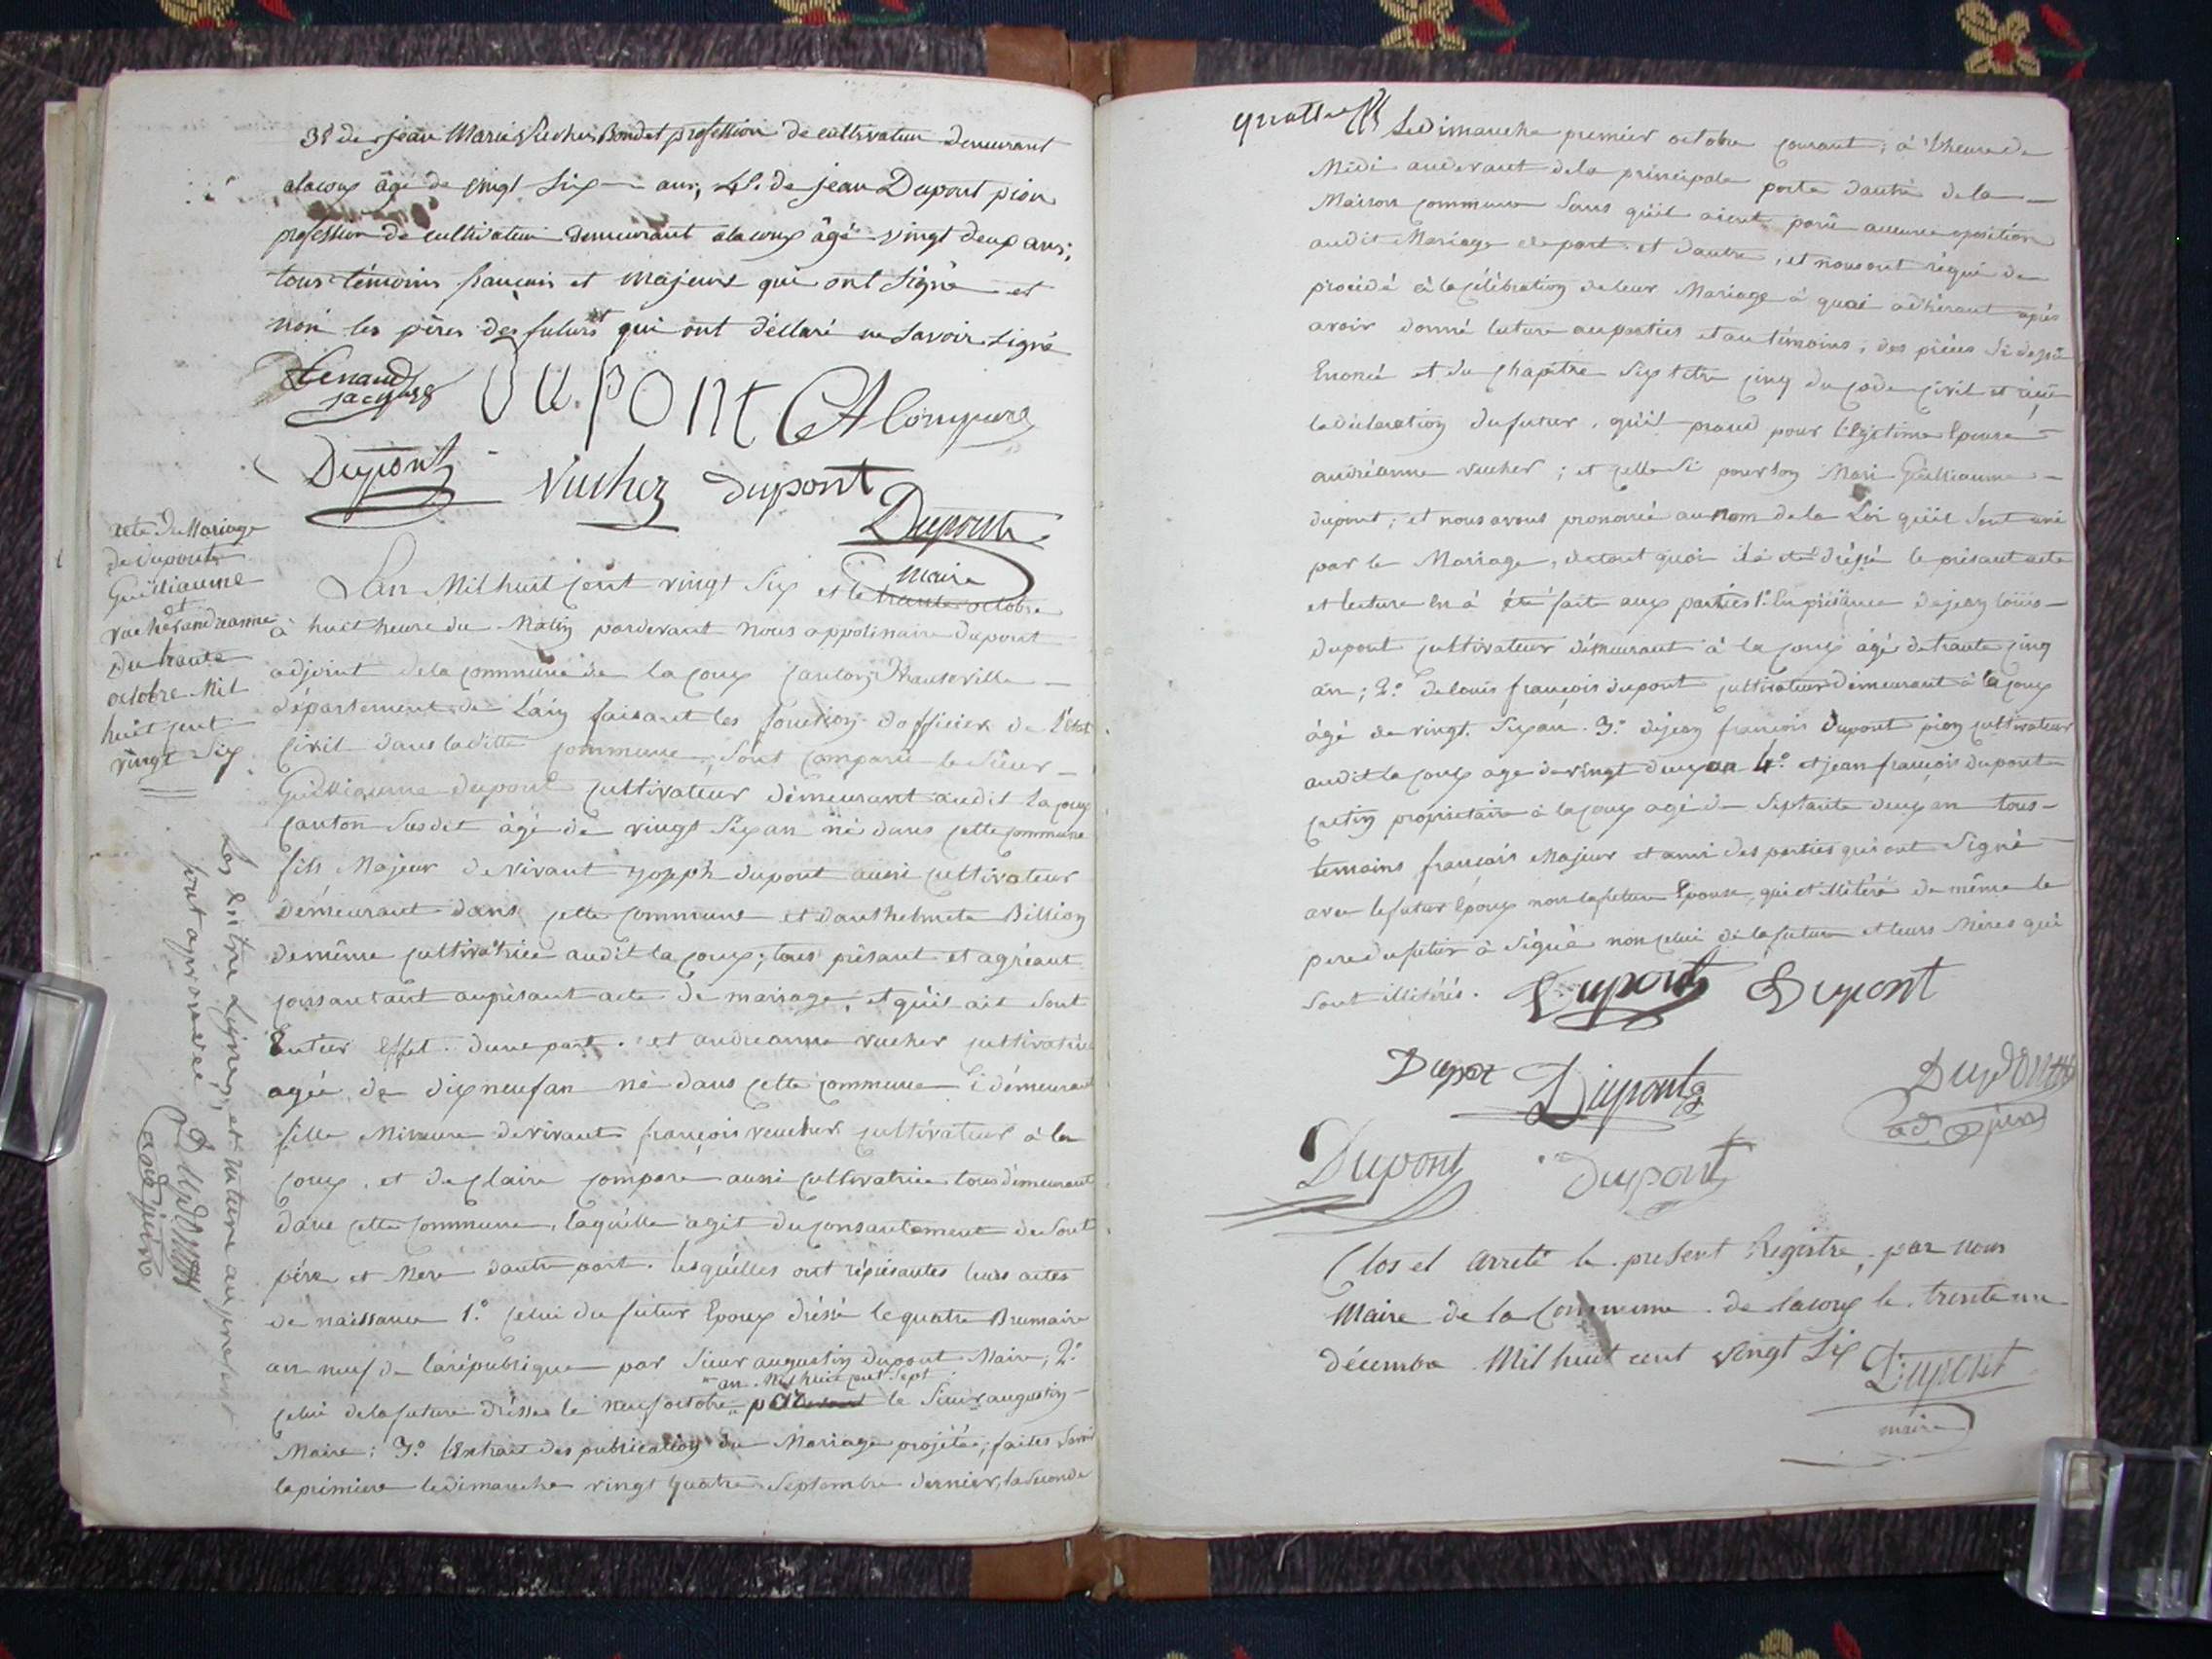 3º de jean Marie Vucher Bondet profession de cultivateur demeurant
alacoux âgé de vingt six ans, 4º. de jean Dupont pion
profession de cultivateur demeurant alacoux âgé vingt deux ans;
tous témoins français et majeurs qui ont signé et
non les pères des futurs qui ont déllaré ne savoir signé
jacques DU.PONT CA Compare
Dupont Vucher dupont
Dupont
maire
acte du Mariage
de dupont
Guilliaume
et
vucher andreanne
du trante
octobre Mil
huit cent
vingt Six
Lan Mil huit cent vingt Six et le trante octobre
à huit heure du Matin pardevant Nous appolinaire dupont
adjoint de la commune de la coux canton Dhauteville
département de L'ain faisant les fonction dofficier de l'état
civil dans laditte commune, sont comparu le sieur
Guilliaume dupont cultivateur démeurant audit la coux
canton susdit âgé de vingt six an né dans cette commune
fils Majeur de vivant joseph dupont aussi cultivateur
démeurant dans cette commune et danthelmete Billion
de même cultivatrice audit la coux, tous présant et agréant
consantant auprésant acte de mariage, et qu'il ait sont
Entier Effet. dune part. et andreanne vucher cultivatrice
agée de dix neuf an né dans cette commune i démeurant
fille Mineure de vivant françois vucher cultivateur à la
coux, et de claire compare aussi cultivatrice tous démeurant
dans cette commune, laquelle agit du consantement de sont
père et Mère dautre part. lesquelles ont réprésantes leurs actes
de naissance 1º. celui du futur Epoux dréssé le quatre Brumaire
an neuf de la république par sieur augustin dupont Maire, 2º
" an. Mil huit cent sept
celui de la future dréssé le neuf octobre " par le Sieur augustin
Maire; 3º. L'Extrait des publication du Mariage projétée; faites savoir
la première le dimanche vingt quatre Septembre dernier, la seconde
Les Entre Lignes, et rature au présent
sont approuvée Dupont
adjoint
quatre
Le dimanche premier octobre courant, à l'heure de
Midi audevant de la principale porte dantré de la
Maison commune sans qu'il aient parû aucune oposition
audit Mariage de part et dautre, et nous ont réqui de
procédé à la célébration de leur Mariage à quoi adhérant aprés
avoir donné lecture au parties et au témoins, des pièces si dessu
Enoncé et du chapitre six titre cinq du code civil et réçu
la déclaration du futur, qu'il prand pour légitime Epouse
andréanne vucher; et celle si pour son Mari Guilliaume
dupont; et nous avons prononcé au nom de la Loi qu'il sont uni
par le Mariage, de tout quoi il à été dréssé le présant acte
et lecture en à été fait aux parties 1º. En présance de jean louis
dupont cultivateur démeurant à la coux âgé de trante cinq
an; 2º. de louis françois dupont cultivateur démeurant à la coux
âgé de vingt six an. 3º. de jean françois dupont pion cultivateur
audit la coux age de vingt deux an 4º. et jean françois dupont
cretin propriétaire à la coux agé de septante deux an tous
temoins français Majeur et ami des parties qui ont Signé
avec le futur Epoux non la future Epouse, qui et illitéré de même le
pere du futur à signé non celui de la future et leurs Mères qui
sont illitérés. Dupont Dupont
Dupont Dupont Dupont
adjoint
Dupont dupont
Clos et arreté le present Registre, par nous
Maire de la Commune de lacoux le trente un
décembre Mil huit cent vingt Six Dupont
maire